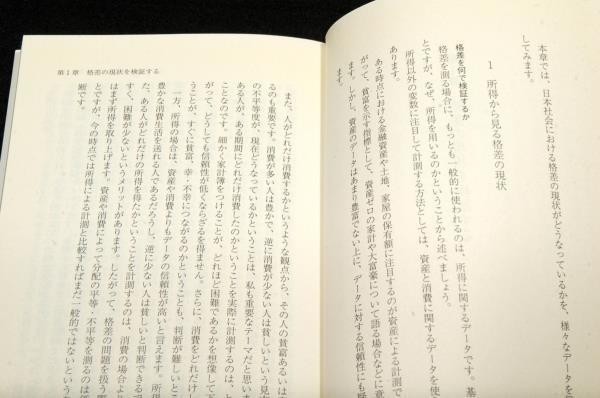 本章では、日本社会における格差の現状がどうなっているかを、様々なデータを
してみます。
1 所得から見る格差の現状
格差を何で検証するか
格差を測る場合に、もっとも一般的に使われるのは、所得に関するデータです。基
とですが、なぜ、所得を用いるのかということから述べましょう。
所得以外の変数に注目して計測する方法としては、資産と消費に関するデータを使
あります。
ある時点における金融資産や土地、家屋の保有額に注目するのが資産による計測で
がって、貧富を示す指標として、資産ゼロの家計や大富豪について語る場合などに意
ます。しかし、資産のデータはあまり豊富でない上に、データに対する信頼性にも疑
第1章 格差の現状を検証する
また、人がどれだけ消費するかというような観点から、その人の貧富あるいは
るのも重要です。消費が多い人は豊かで、逆に消費が少ない人は貧しいという見方
の不平等度が、現在どうなっているかということは、私も重要なテーマだと思いま
ある人が、ある期間にどれだけ消費したのかということを実際に計測するのは、と
ことなのです。細かく家計簿をつけることが、どれほど困難であるかを想像して下
がって、どうしても信頼性が低くならざるを得ません。さらに、消費をどれだけし
うことが、すぐに貧富、幸・不幸につながるのかということも、判断が難しいとこ
一方、所得の場合は、資産や消費よりもデータの信頼性が高いと言えます。所
豊かな消費生活を送れる人であるだろうし、逆に少ない人は貧しいと判断できる現
た、ある人がどれだけの所得を得たかということを計測するのは、消費の場合より
すく、困難が少ないというメリットがあります。したがって、格差の問題を扱う際
はまず所得を取り上げます。資産や消費によって分配の平等・不平等を測るのは
とですが、今の時点では所得による計測と比較すればまだ一般的ではないという
断です。